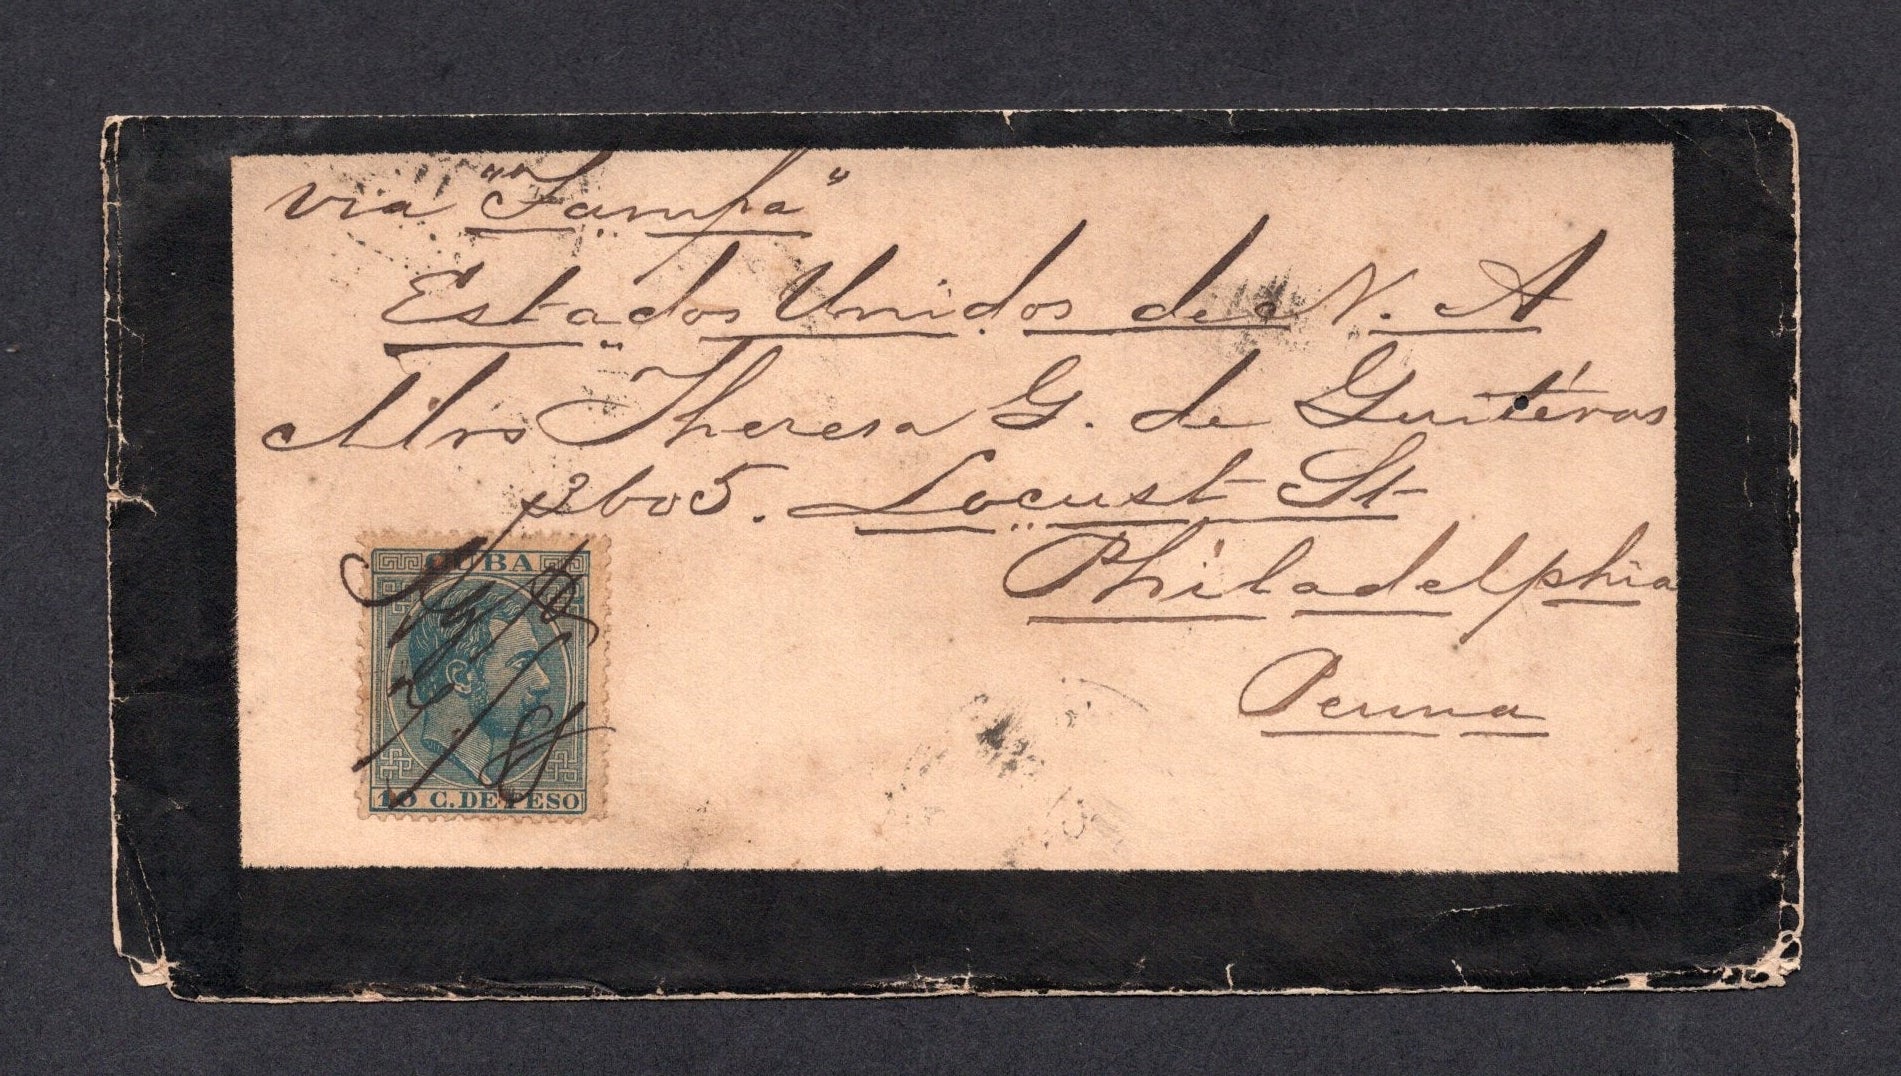 via "Tampa"
Estados Unidos de N. A
Mrs Theresa G. de Guitéras
3605. Locust St
Philadelphia
Penna
CUBA
10 C. DE PESO